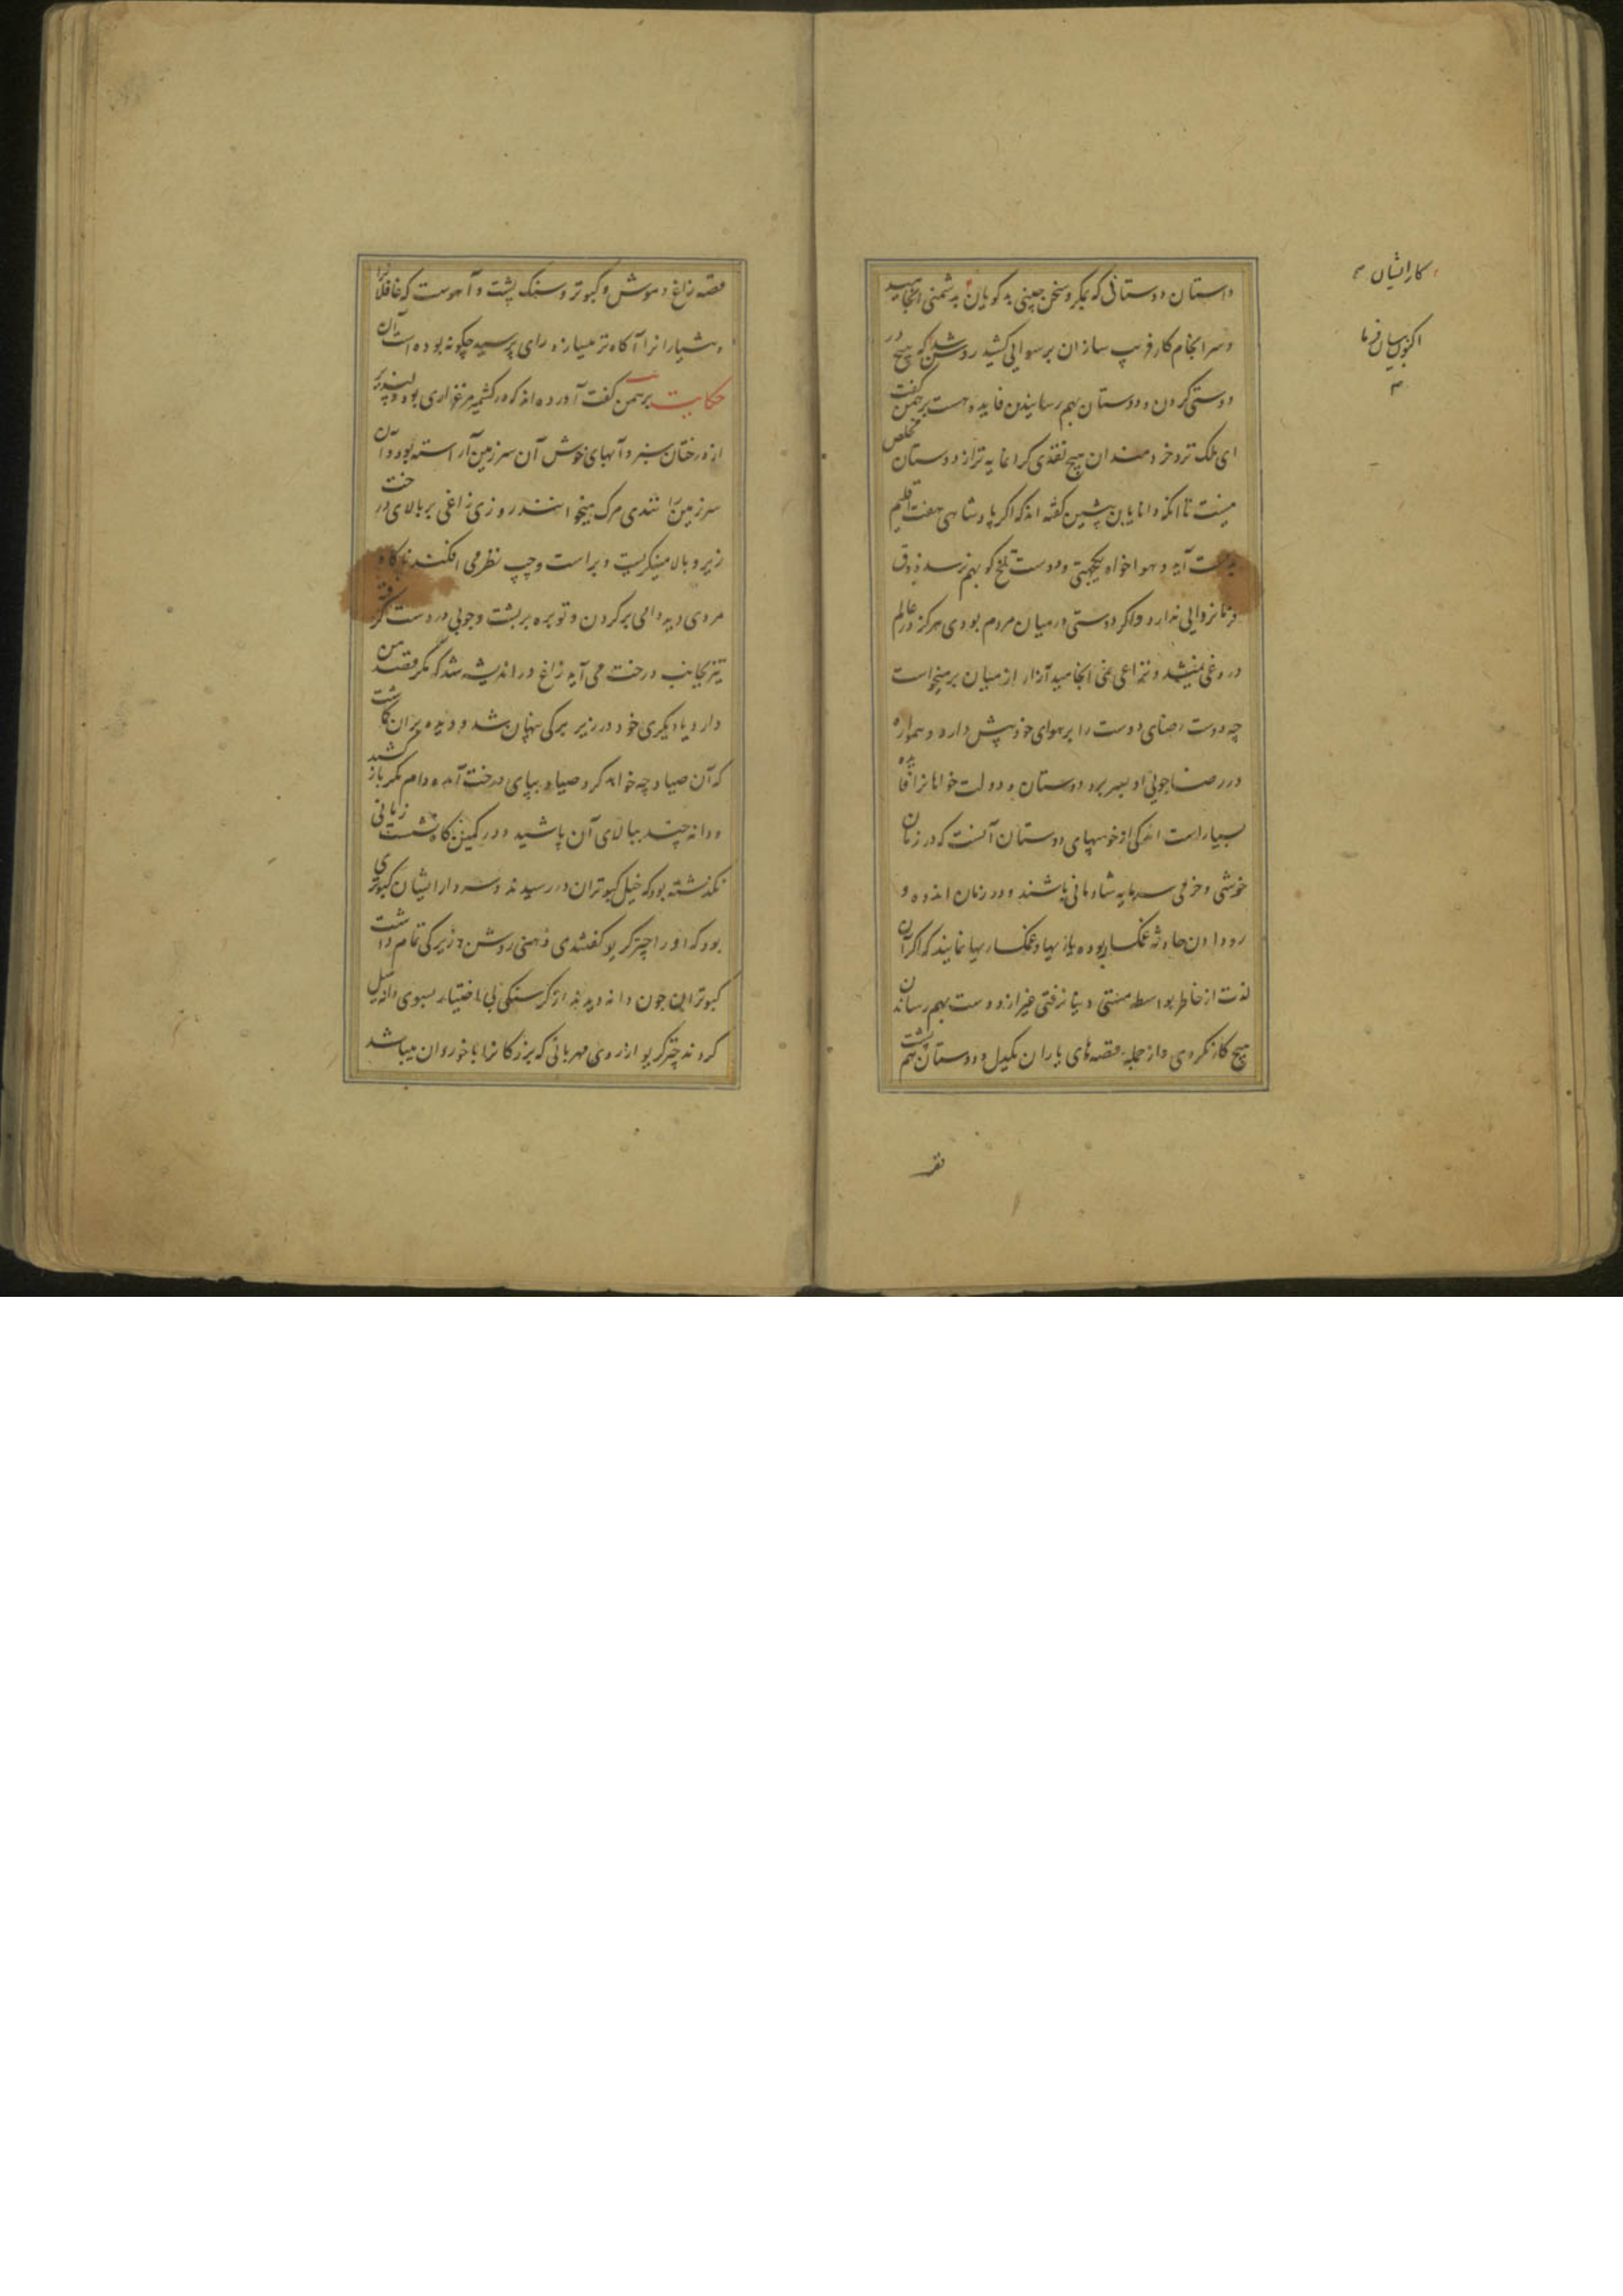 داستان دوستانی که بمکر و سخن چینی بدکویان بدشمنی انجامید
و سرانجام کار فریب سازان برسوایی کشید روشن شد که هیچ در
دوستی کردن و دوستان بهم رسانیدن فایده هست برهمن گفت
ای ملک نزد خردمندان هیچ نقدی کرانمایه تر از دوستان مخلص
نیست تا آنکه دانایان پیشین گفته اند که اگر پادشاهی هفت اقلیم
بدست آید و هواخواه یکجهتی و دوست تلخ کو بهم نرسد ذوق
فرمانروایی ندارد و اکر دوستی در میان مردم بودی هرکز در عالم
دروغی نمیشد و نزاعی نمی انجامید آزار از میان برمیخواست
چه دوست رضای دوست را بر هوای خود پیش دارد و همواره
در رضا جویی او بسر برد دوستان و دولت خواهانرا فایده
بسیار است اندکی از خوبیهای دوستان آنست که در زمان
خوشی و خرمی سرمایه شادمانی باشند و در زمان اندوه و
رو دادن حادثه غمکسار بوده یاریها و غمکساریها نمایند که اکر آن
لذت از خاطر بواسطه
هیچ کار نکردی و از جمله قصه های یاران یکدل و دوستان هم پشت
کار ایشان
اکنون بیان فرما
قصه
قصه زاغ و موش و کبوتر و سنک پشت و آهوست که غافلانرا
و هشیارانرا آکاه تر میسازد رای پرسید چکونه بوده است آن
حکایت برهمن گفت آورده اند که در کشمیر مرغزاری بود دلپذیر
از درختان سبز و آبهای خوش آن سرزمین آراسته بود و آن
سرزمین را مرک میخوانند روزی زاغی بر بالای درخت
زیر و بالا مینکریست و براست و چپ نظر می افکند ناکاه
مردی دید دامی بر کردن و توبره بر پشت و چوبی در دست کرفته
تیز بجانب درخت می آید زاغ در اندیشه شد که مکر قصد من
دارد یا دیکری خود در زیر برکی پنهان شد و دیده بران کاشت
که آن صیاد چه خواهد کرد صیاد بپای درخت آمده دام مکر باز کشید
و دانه چند ببالای آن پاشید و در کمین کاه نشست زمانی
نکذشته بود که خیل کبوتران در رسیدند و سردار ایشان کبوتری
بود که او را چترکریو کفتندی ذهنی روشن و زیرکی تمام داشت
کبوتران چون دانه دیدند از کرسنکی بی اختیار بسوی دانه میل
کردند چترکریو از روی مهربانی که بزرکانرا با خوردان میباشد